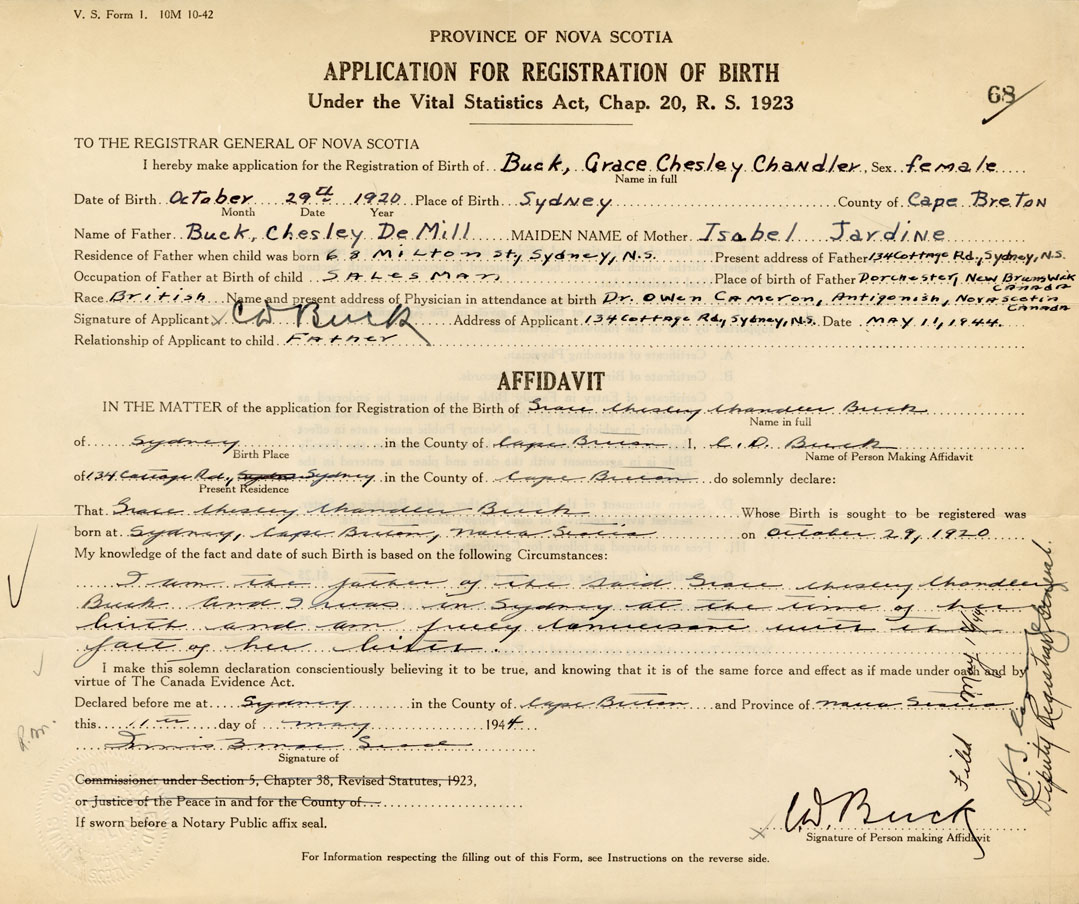 V. S. Form 1. 10M 10-42
PROVINCE OF NOVA SCOTIA
APPLICATION FOR REGISTRATION OF BIRTH
Under the Vital Statistics Act, Chap. 20, R. S. 1923
68
TO THE REGISTRAR GENERAL OF NOVA SCOTIA
I hereby make application for the Registration of Birth of Buck, Grace Chesley Chandler, Sex female
Name in full
Date of Birth October 29th 1920 Place of Birth Sydney County of Cape Breton
Month Date Year
Name of Father Buck, Chesley De Mill MAIDEN NAME of Mother Isabel Jardine
Residence of Father when child was born 68 Milton St, Sydney, N.S. Present address of Father 134 Cottage Rd., Sydney, N.S.
Occupation of Father at Birth of child Salesman Place of birth of Father Dorchester, New Brunswick
Canada
Race British Name and present address of Physician in attendance at birth Dr. Owen Cameron, Antigonish, Nova Scotia
Canada
Signature of Applicant x CD Buck Address of Applicant 134 Cottage Rd, Sydney, N.S. Date May 11, 1944.
Relationship of Applicant to child Father
AFFIDAVIT
IN THE MATTER of the application for Registration of the Birth of Grace Chesley Chandler Buck
Name in full
of Sydney in the County of Cape Breton I, C. D. Buck
Birth Place Name of Person Making Affidavit
of 134 Cottage Rd., Sydney in the County of Cape Breton do solemnly declare:
Present Residence
That Grace Chesley Chandler Buck Whose Birth is sought to be registered was
born at Sydney, Cape Breton, Nova Scotia on October 29, 1920
My knowledge of the fact and date of such Birth is based on the following Circumstances:
I am the father of the said Grace Chesley Chandler
Buck and I was in Sydney at the time of her
birth and am fully conversant with the
fact of her birth.
I make this solemn declaration conscientiously believing it to be true, and knowing that it is of the same force and effect as if made under oath and by
virtue of The Canada Evidence Act.
Declared before me at Sydney in the County of Cape Breton and Province of Nova Scotia
this 11th day of May 1944
Signature of
Commissioner under Section 5, Chapter 38, Revised Statutes, 1923,
or Justice of the Peace in and for the County of
If sworn before a Notary Public affix seal.
x C.D. Buck
Signature of Person making Affidavit
For Information respecting the filling out of this Form, see Instructions on the reverse side.
Filed May 1944
Deputy Registrar General.
R.M.